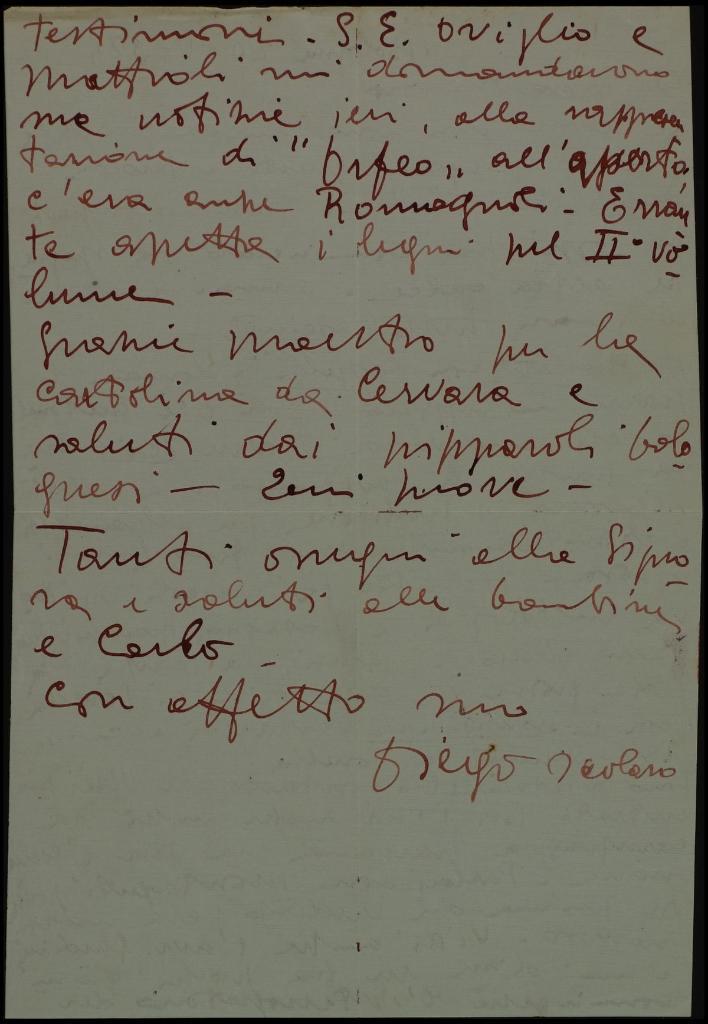 testimoni. S. E. Oviglio e
Mattioli mi domandarono
sue notizie ieri, alla rappresen
tazione di "Orfeo" all'aperto
c'era anche Romagnoli - Erran
te aspetta i legni pel II° vo
lume -
Grazie maestro per la
cartolina da Cervara e
saluti dai bolo
gnesi - piove -
Tanti ossequi alla Signo
ra e saluti alle bambine
e Carlo
Con affetto suo
Diego